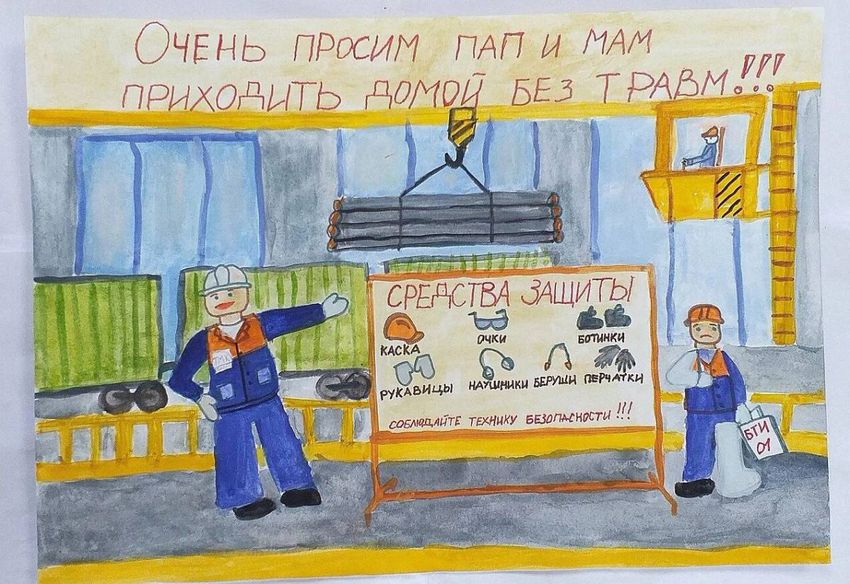 Очень просим пап и мам
приходить домой без травм!!!
Средства защиты
каска
очки
ботинки
рукавицы
наушники
беруши
перчатки
соблюдайте технику безопасности!!!
БТИ
01